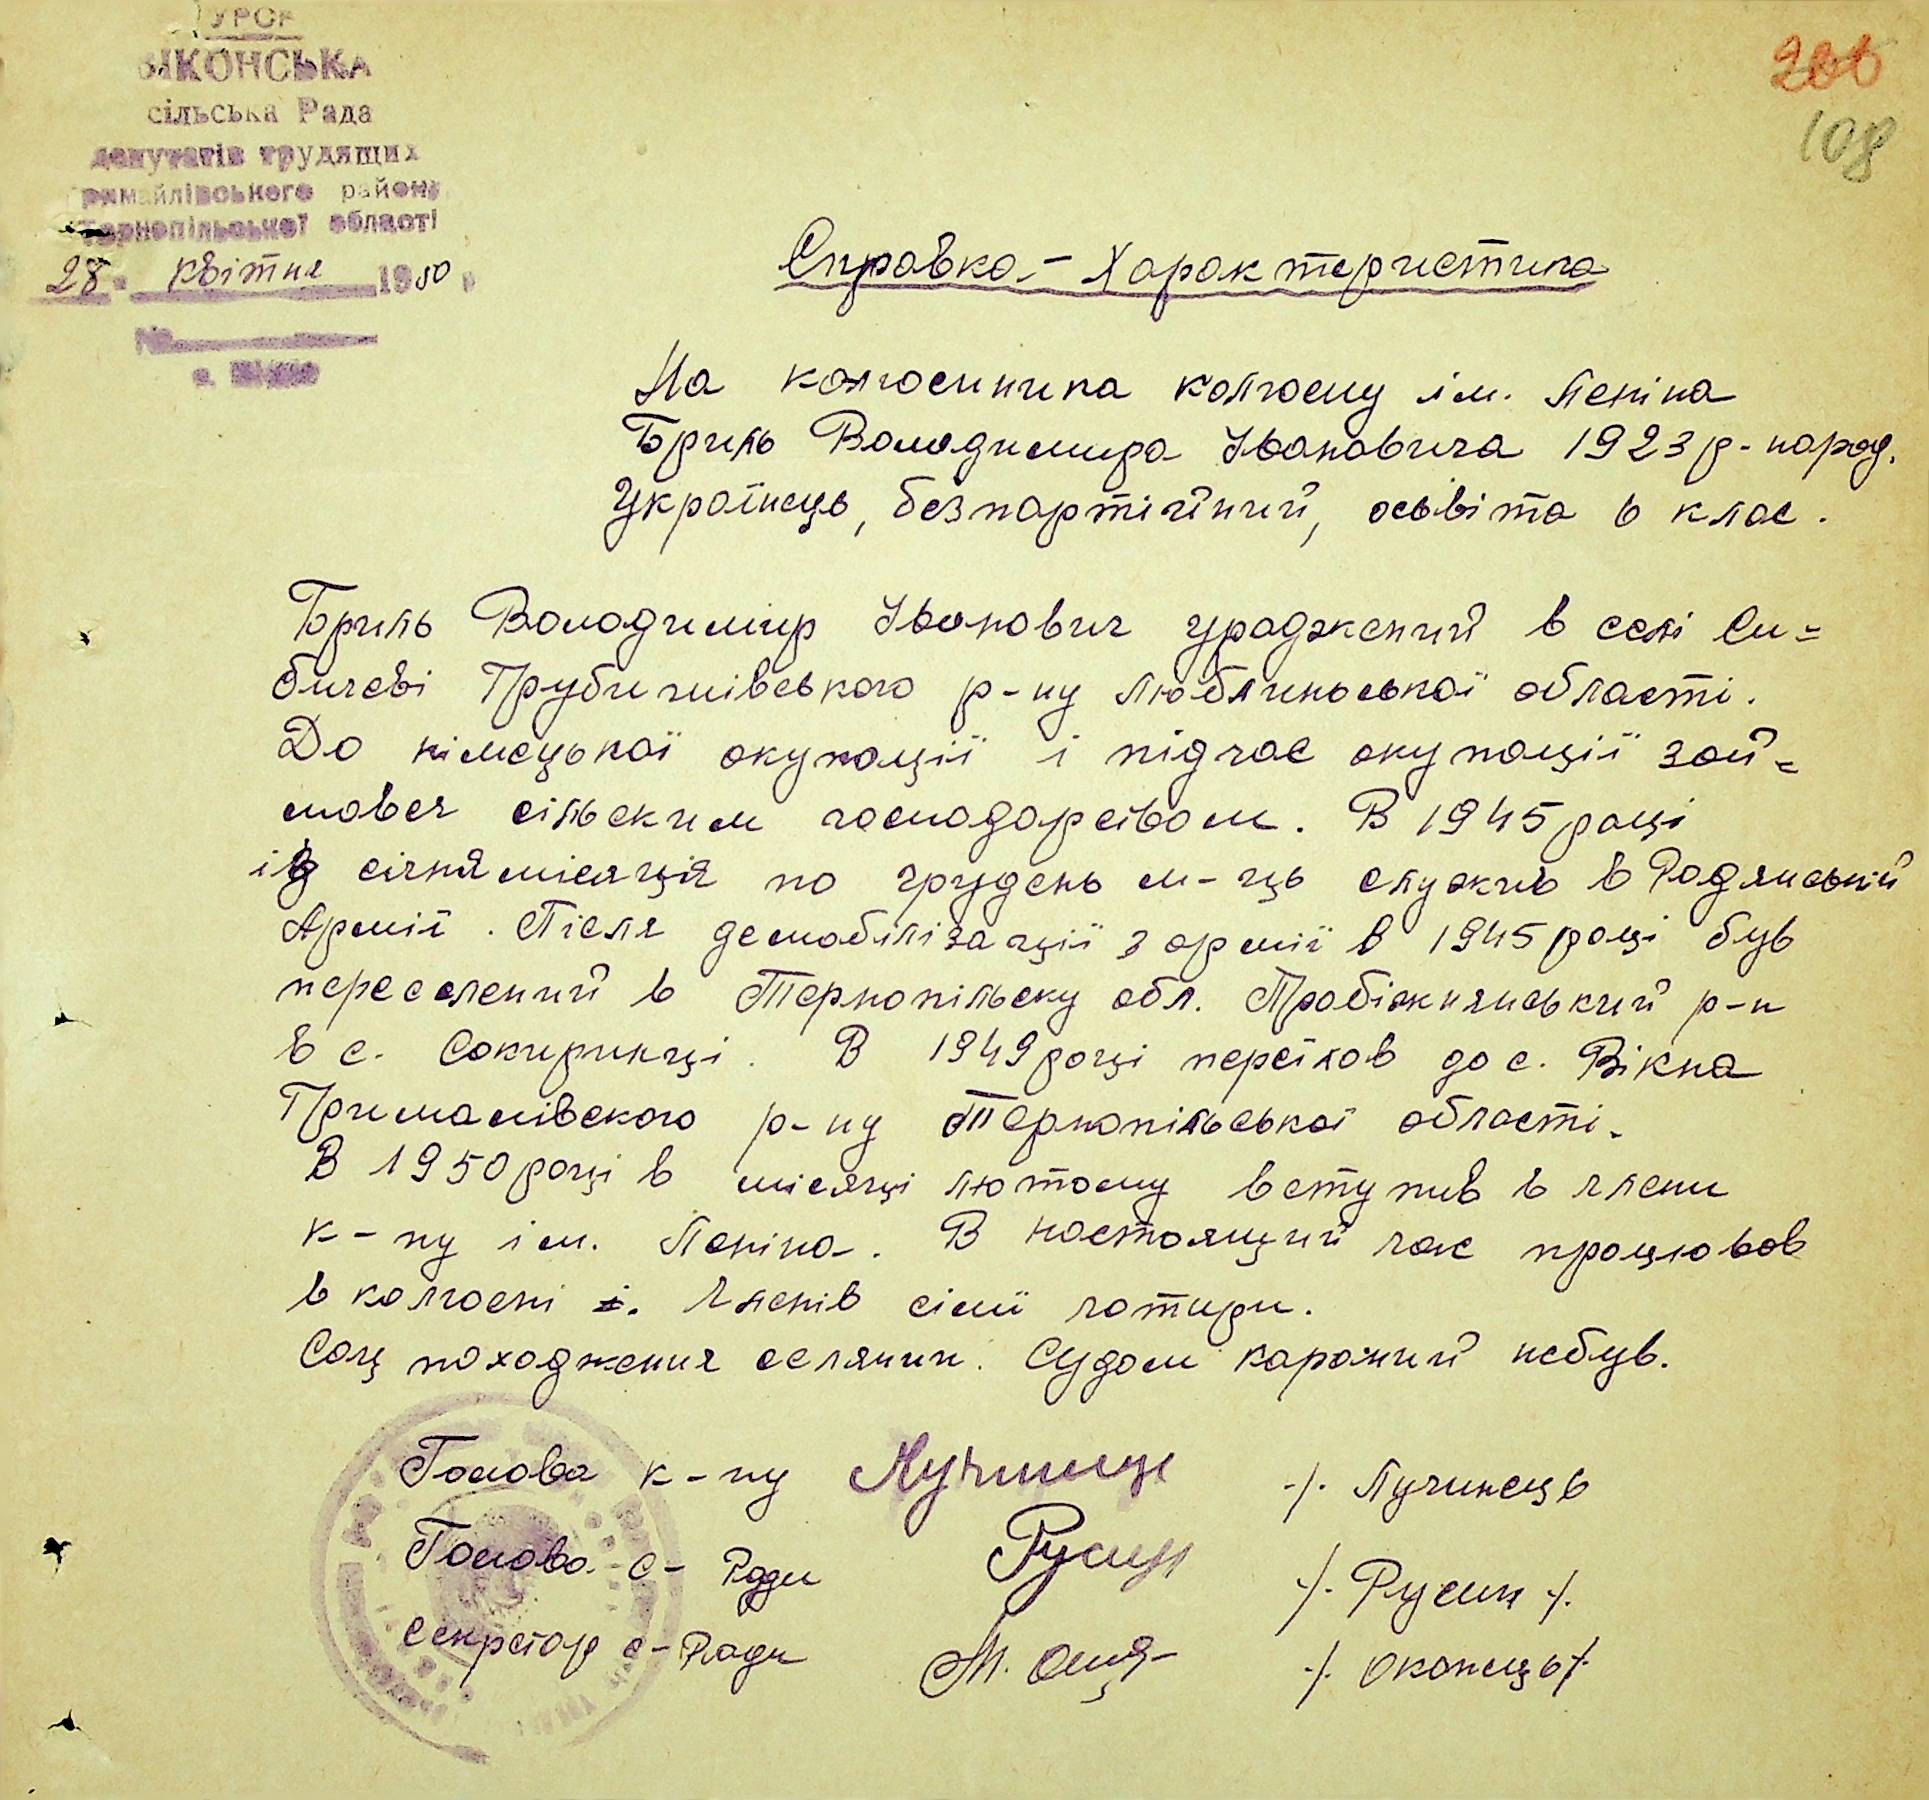 УРСР
ВІКОНСЬКА
сільська Рада
депутатів трудящих
Гримайлівського району
Тернопільської області
28 квітня 1950 р
№
с. Вікно
208
108
Справка - Характеристика
На колгосника колгоспу ім. Леніна
Бриль Володимира Івановича 1923 р-народ.
Українець, безпартійний, освіта 6 клас.
Бриль Володимир Іванович уроджений в селі Си=
бичеві Грубишівського р-ну Люблиньської області.
До німецької окупації і підчас окупації зай=
мався сільским господарством. В 1945 році
із січня місяця по грудень м-ць служив в Радянській
Армії. Після демобілізації з армії в 1945 році був
переселений в Тернопільску обл. Пробіжнянський р-н
в с. Сокиринці. В 1949 році переїхав до с. Вікна
Грималівского р-ну Тернопільської області.
В 1950 році в місяці лютому вступив в члени
к-пу ім. Леніна. В настоящий час працював
в колгоспі і. Членів сімї чотири.
Соц походження селянин. Судом караний небув.
Голова к-пу Лучинец -/. Лучинець
Голова с- Ради Русин -/. Русин -/.
Секретар с-Ради М. -/. Оконець/-